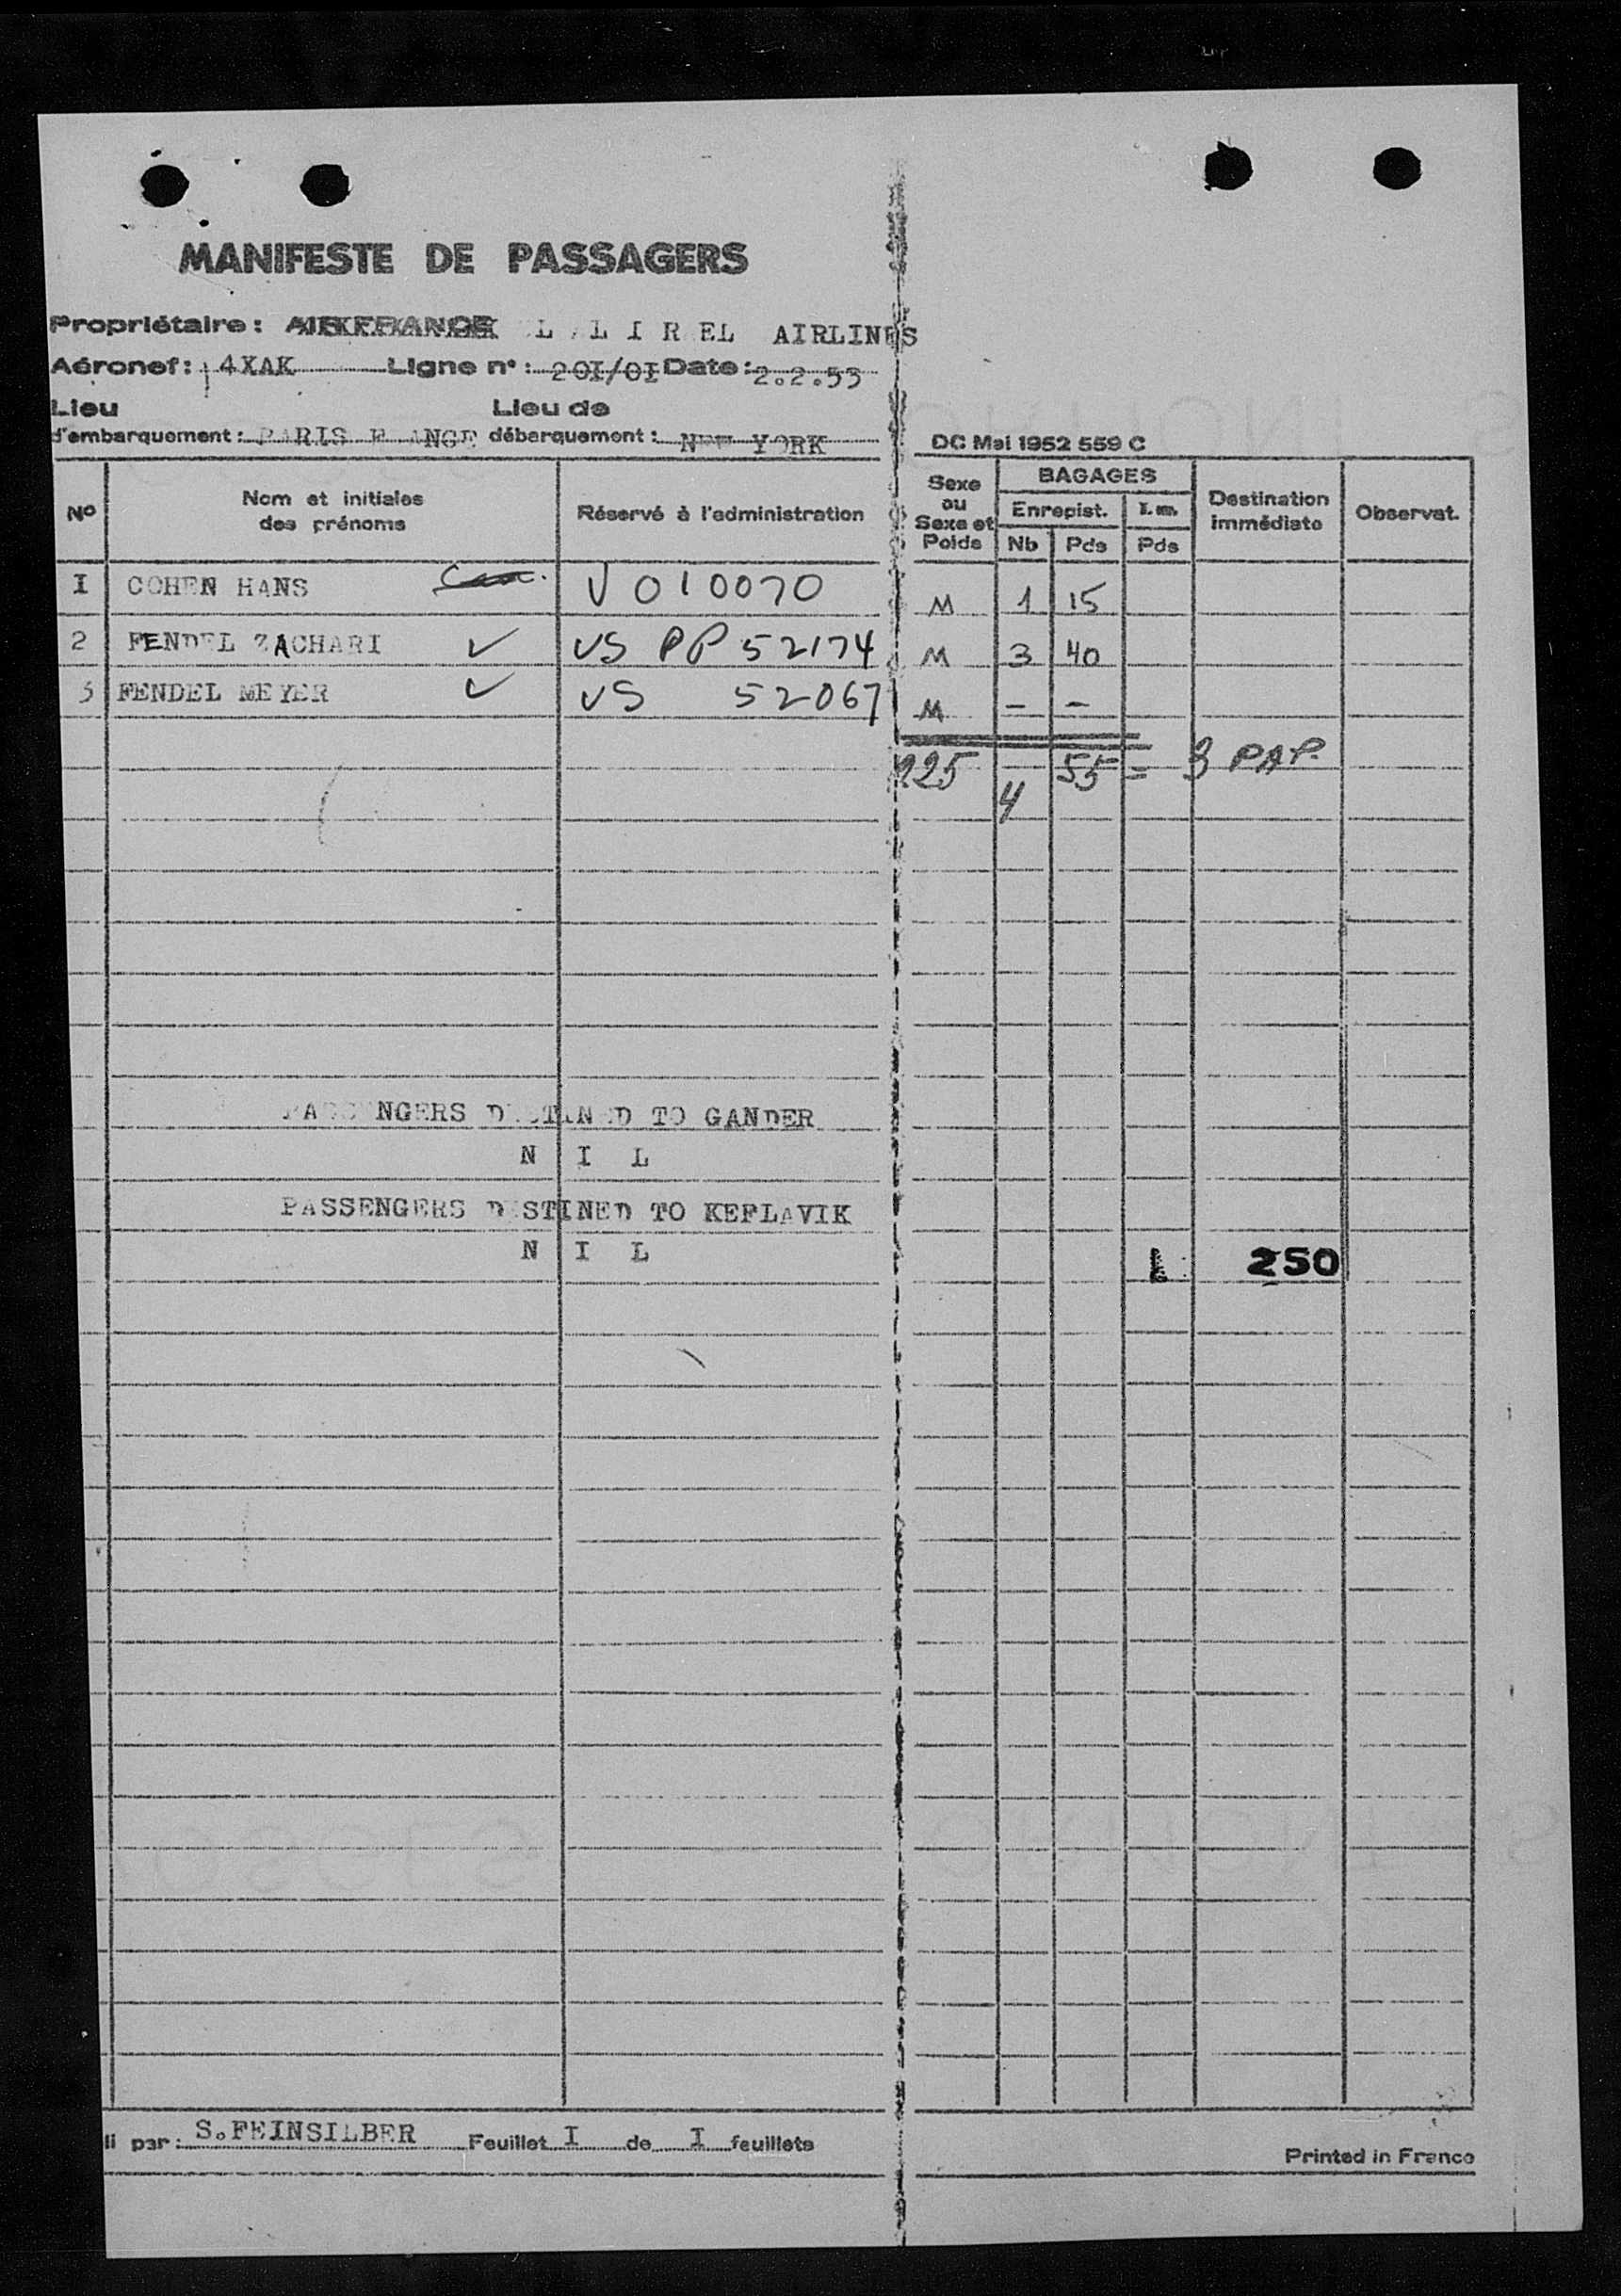 MANIFESTE DE PASSAGERS
Propriétaire: AIR FRANCE L L I R EL AIRLINES
Aéronef: 4XAK Ligne n°: 20I/0I Date: 2.2.53
Lieu d'embarquement: PARIS F ANCE Lieu de débarquement: NEW YORK
DC Mai 1952 559 C
No Nom et initiales des prénoms Réservé à l'administration Sexe ou Sexe et Poids BAGAGES Enregist. Nb Pds Pds Destination immédiate Observat.
I COHEN HANS V 010070 M 1 15
2 FENDEL ZACHARI ✓ US PP 52174 M 3 40
3 FENDEL MEYER ✓ US 52067 M - -
225 4 55 = 3 PAP.
PASSENGERS DESTINED TO GANDER
N I L
PASSENGERS DESTINED TO KEFLAVIK
N I L
250
li par: S.FEINSILBER Feuillet I de I feuillets
Printed in France